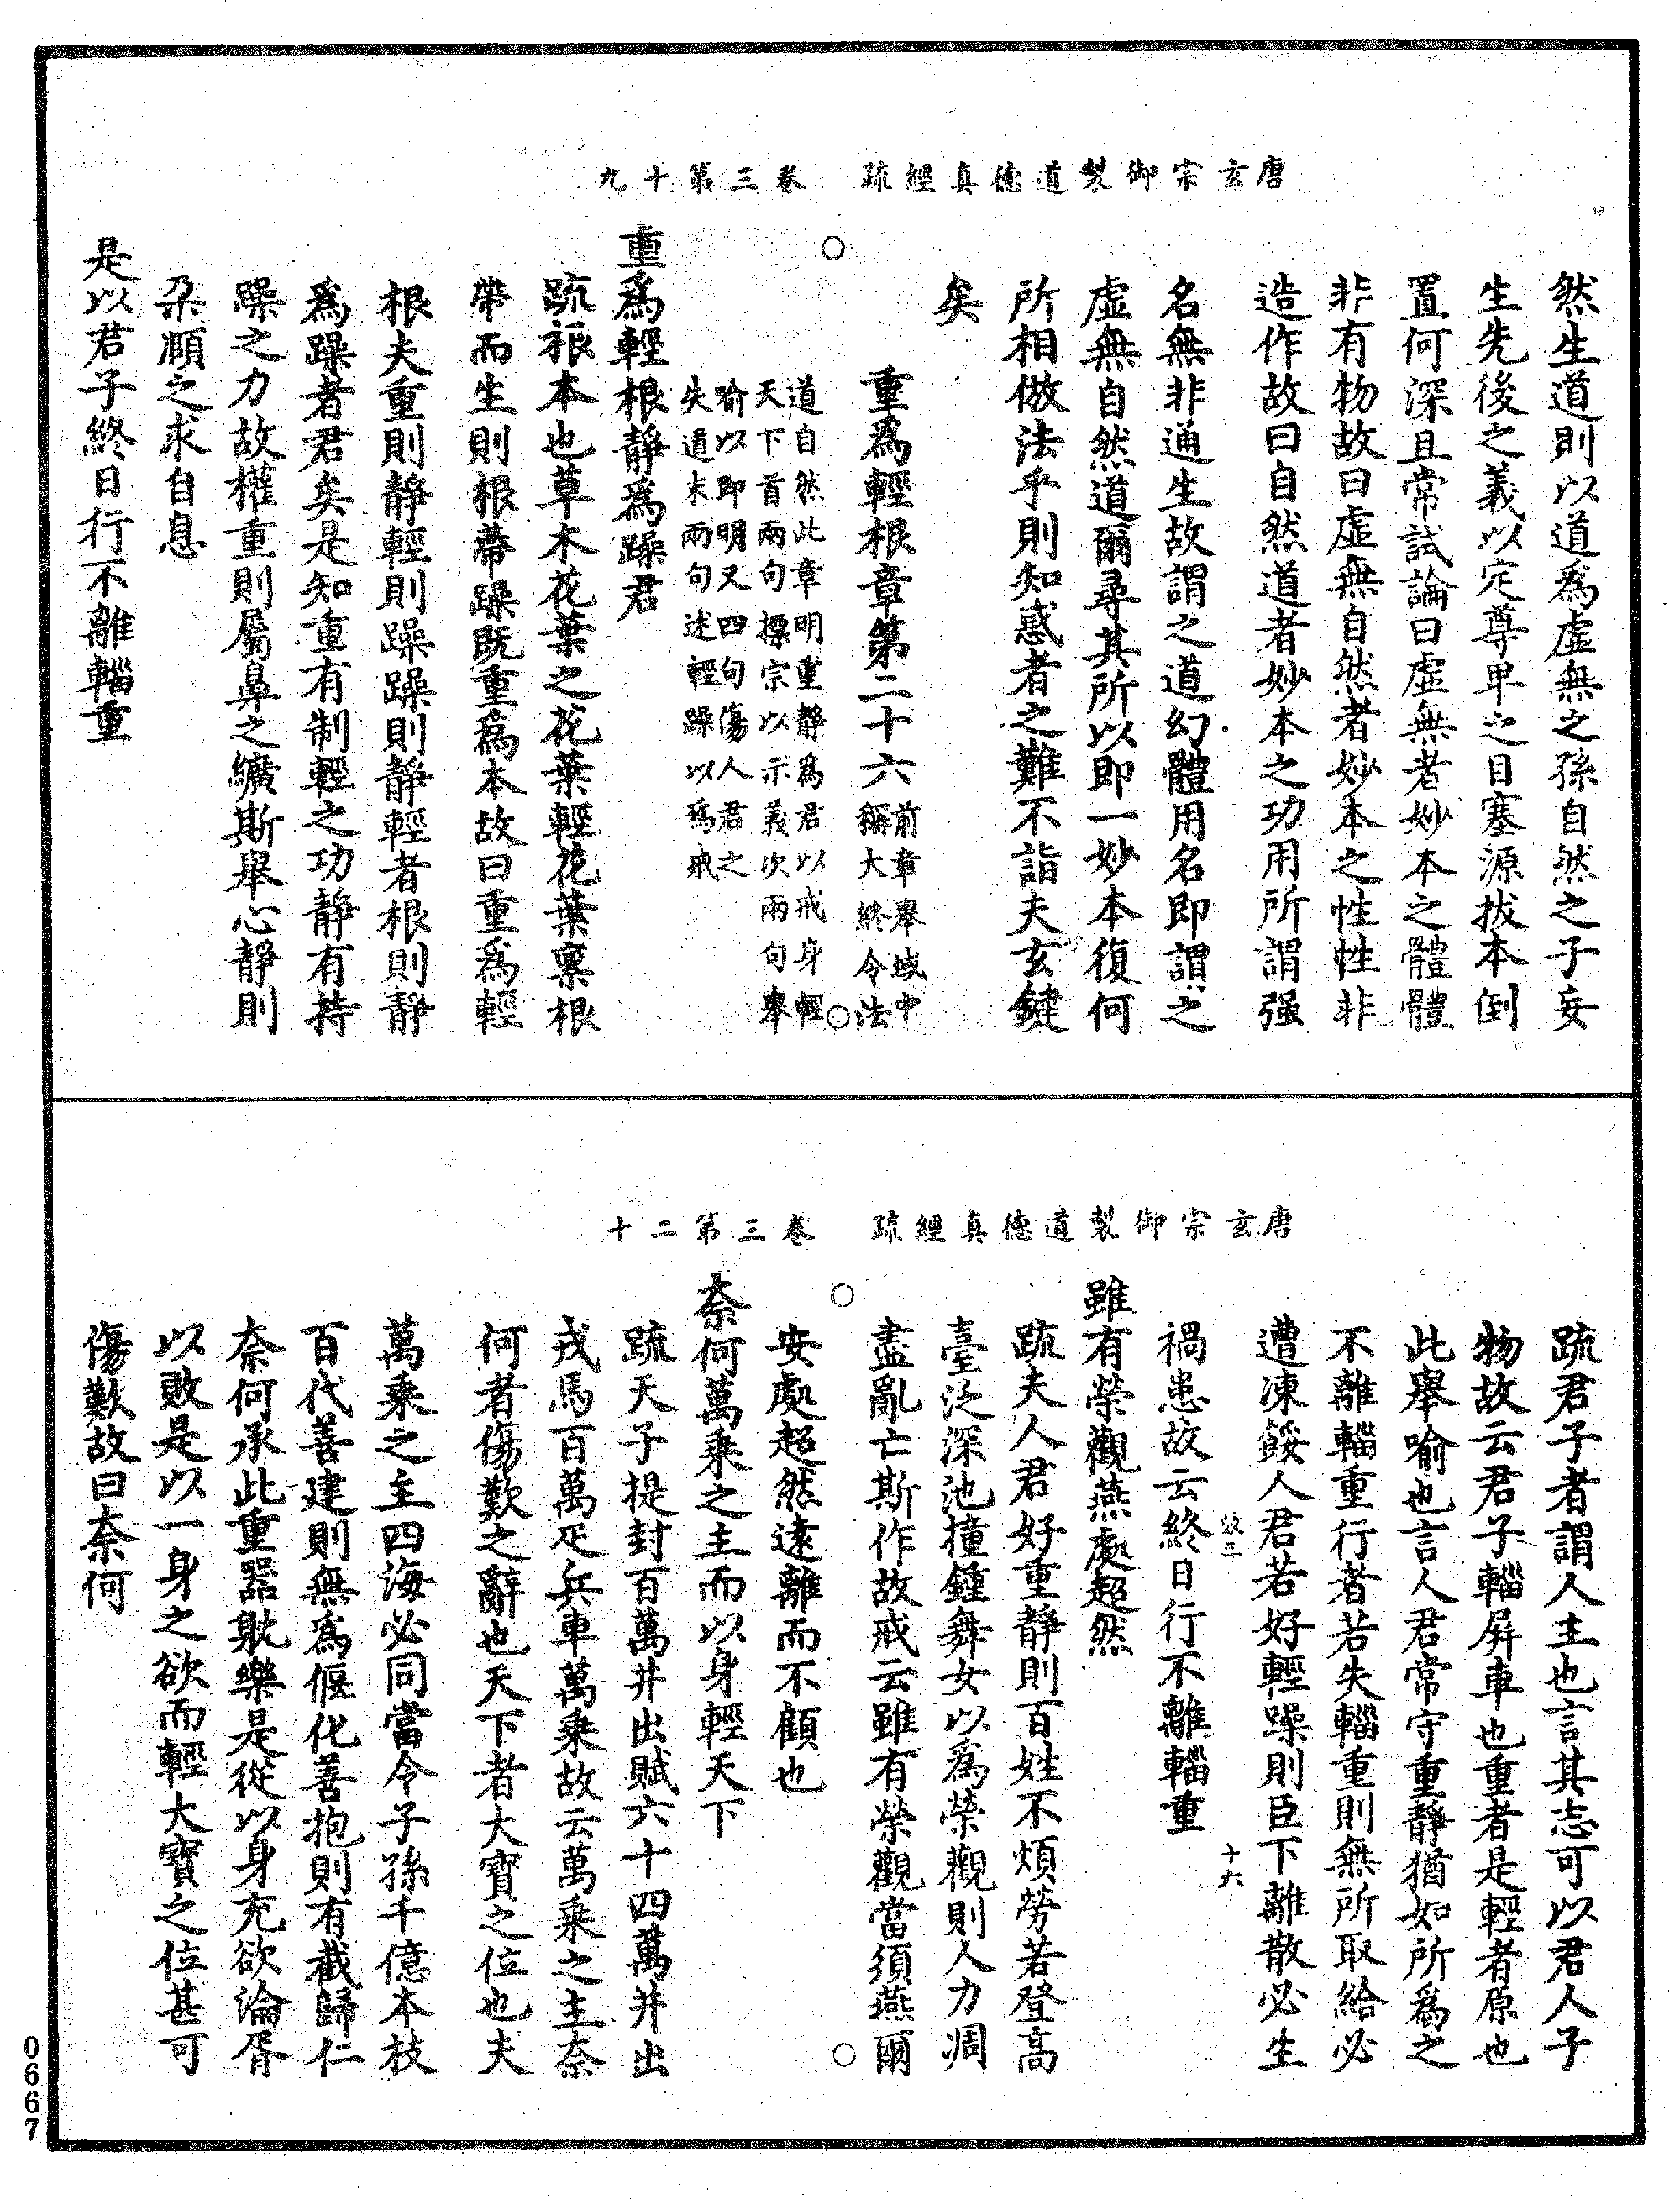 唐玄宗御製道德真經疏　卷三第十九
然生道則以道為虛無之孫自然之子妄
生先後之義以定尊卑之目塞源拔本倒
置何深且常試論曰虛無者妙本之體體
非有物故曰虛無自然者妙本之性性非
造作故曰自然道者妙本之功用所謂强
名無非通生故謂之道幻體用名即謂之
虛無自然道爾尋其所以即一妙本復何
所相倣法乎則知惑者之難不詣夫玄鍵
矣
重為輕根章第二十六前章舉域中
稱大終令法
道自然此章明重靜為君以戒身輕
天下首兩句標宗以示義次兩句舉
喻以即明又四句傷人君之
失道末兩句述輕躁以為戒
重為輕根靜為躁君
疏根本也草木花葉之花葉輕花葉稟根
帶而生則根蔕躁既重為本故曰重為輕
根夫重則靜輕則躁躁則靜輕者根則靜
為躁者君矣是知重有制輕之功静有持
躁之力故權重則屬鼻之纊斯舉心靜則
朶頤之求自息
是以君子終日行不離輜重
唐玄宗御製道德真經疏　卷三第二十
疏君子者謂人主也言其志可以君人子
物故云君子輜屏車也重者是輕者原也
此舉喻也言人君常守重靜猶如所為之
不離輜重行者若失輜重則無所取給必
遭凍餒人君若好輕躁則臣下離散必生
十六
禍患故云終日行不離輜重
雖有榮觀燕處超然
疏夫人君好重靜則百姓不煩勞若登高
臺泛深池撞鍾舞女以為榮觀則人力凋
盡亂亡斯作故戒云雖有榮觀當須燕爾
安處超然遠離而不顧也
柰何萬乘之主而以身輕天下
疏天子提封百萬井出賦六十四萬井出
戎馬百萬疋兵車萬乘故云萬乘之主柰
何者傷歎之辭也天下者大寶之位也夫
萬乘之主四海必同當令子孫千億本枝
百代善建則無為偃化善抱則有截歸仁
柰何承此重器耽樂是從以身充欲淪胥
以敗是以一身之欲而輕大寶之位甚可
傷歎故曰柰何
0667